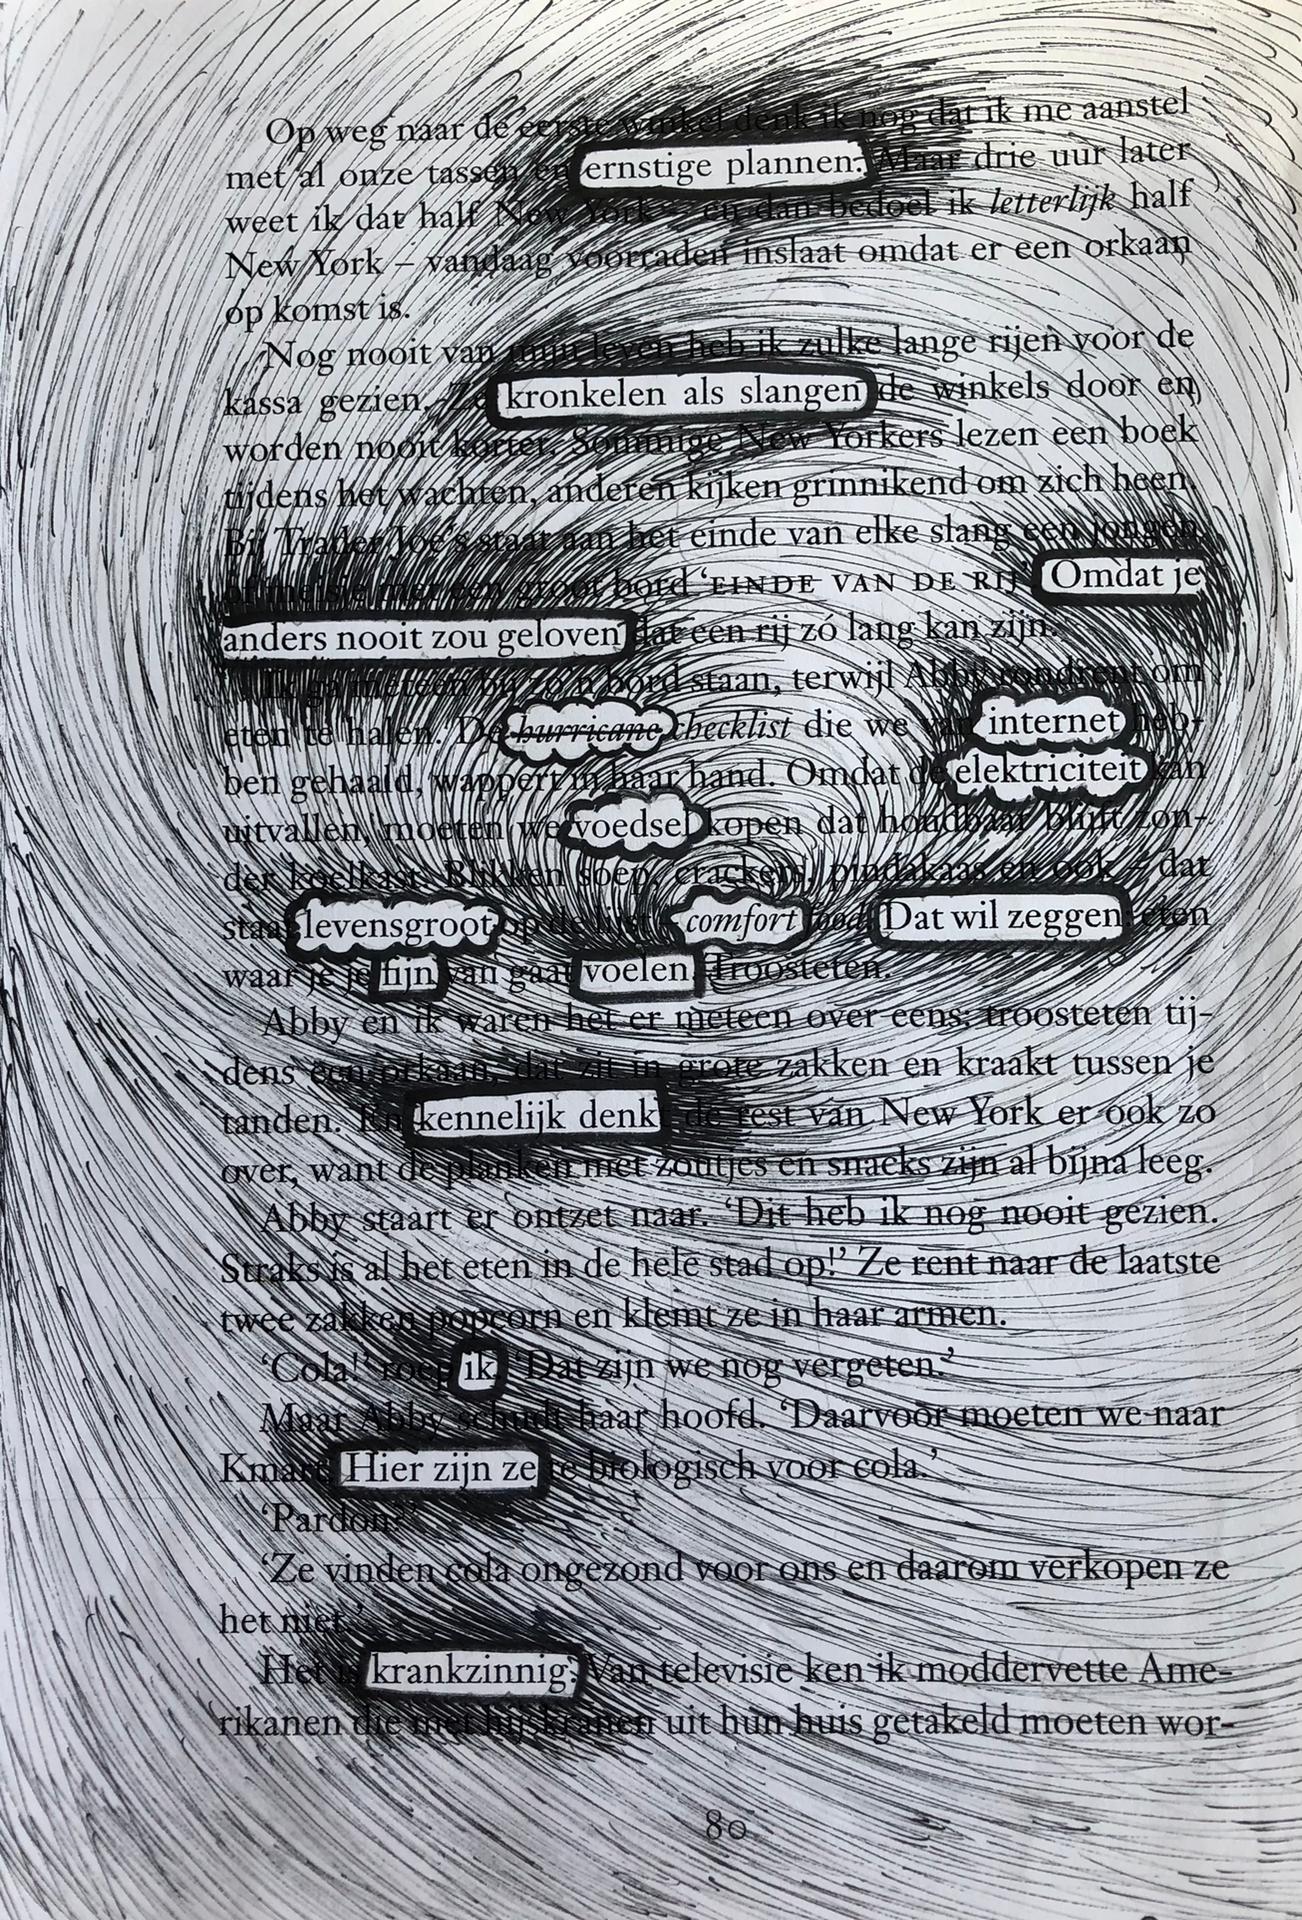 Op weg naar de eerste winkel denk ik nog dat ik me aanstel
met al onze tassen en ernstige plannen. Maar drie uur later
weet ik dat half New York – en dan bedoel ik letterlijk half
New York – vandaag voorraden inslaat omdat er een orkaan
op komst is.
Nog nooit van mijn leven heb ik zulke lange rijen voor de
kassa gezien. Ze kronkelen als slangen de winkels door en
worden nooit korter. Sommige New Yorkers lezen een boek
tijdens het wachten, anderen kijken grinnikend om zich heen.
Bij Trader Joe's staat aan het einde van elke slang een jongen
of meisje met een groot bord ‘EINDE VAN DE RIJ’. Omdat je
anders nooit zou geloven dat een rij zó lang kan zijn.
Ik ga meteen bij zo'n bord staan, terwijl Abby rondrent om
eten te halen. De hurricane checklist die we van internet heb-
ben gehaald, wappert in haar hand. Omdat de elektriciteit kan
uitvallen, moeten we voedsel kopen dat houdbaar blijft zon-
der koelkast. Blikken soep, crackers, pindakaas en ook – dat
staat levensgroot op de lijst – comfort food. Dat wil zeggen: eten
waar je je fijn van gaat voelen. Troosteten.
Abby en ik waren het er meteen over eens: troosteten tij-
dens een orkaan, dat zit in grote zakken en kraakt tussen je
tanden. En kennelijk denkt de rest van New York er ook zo
over, want de planken met zoutjes en snacks zijn al bijna leeg.
Abby staart er ontzet naar. ‘Dit heb ik nog nooit gezien.
Straks is al het eten in de hele stad op!’ Ze rent naar de laatste
twee zakken popcorn en klemt ze in haar armen.
‘Cola!’ roep ik. ‘Dat zijn we nog vergeten.’
Maar Abby schudt haar hoofd. ‘Daarvoor moeten we naar
Kmart. Hier zijn ze te biologisch voor cola.’
‘Pardon?’
‘Ze vinden cola ongezond voor ons en daarom verkopen ze
het niet.’
Het is krankzinnig. Van televisie ken ik moddervette Ame-
rikanen die met hijskranen uit hun huis getakeld moeten wor-
80